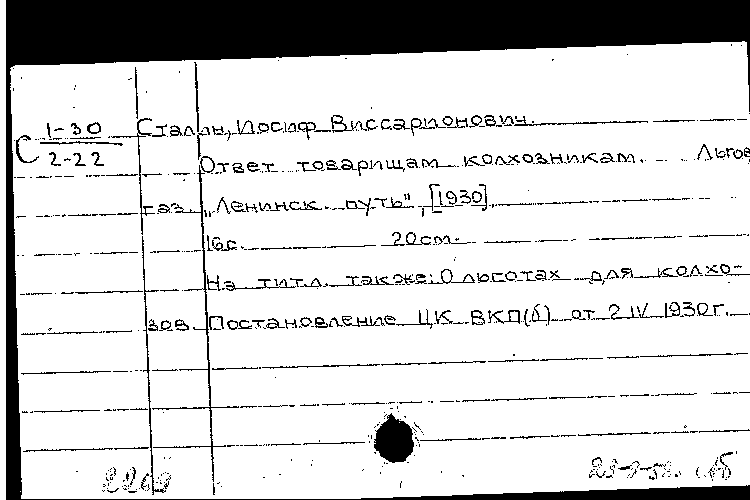 С 1-30 Сталин, Иосиф Виссарионович.
2-22
Ответ товарищам колхозникам. Льгов
газ. „Ленинск. путь", [1930].
16с. 20см.
На тит.л. также: О льготах для колхо-
зов. Постановление ЦК ВКП(б) от 2 IV 1930г.
2269